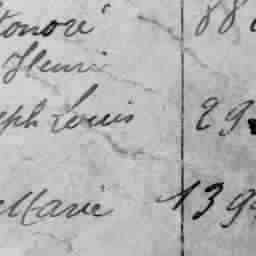 Honoré 88
Henri
eph Louis 29
Marie 139